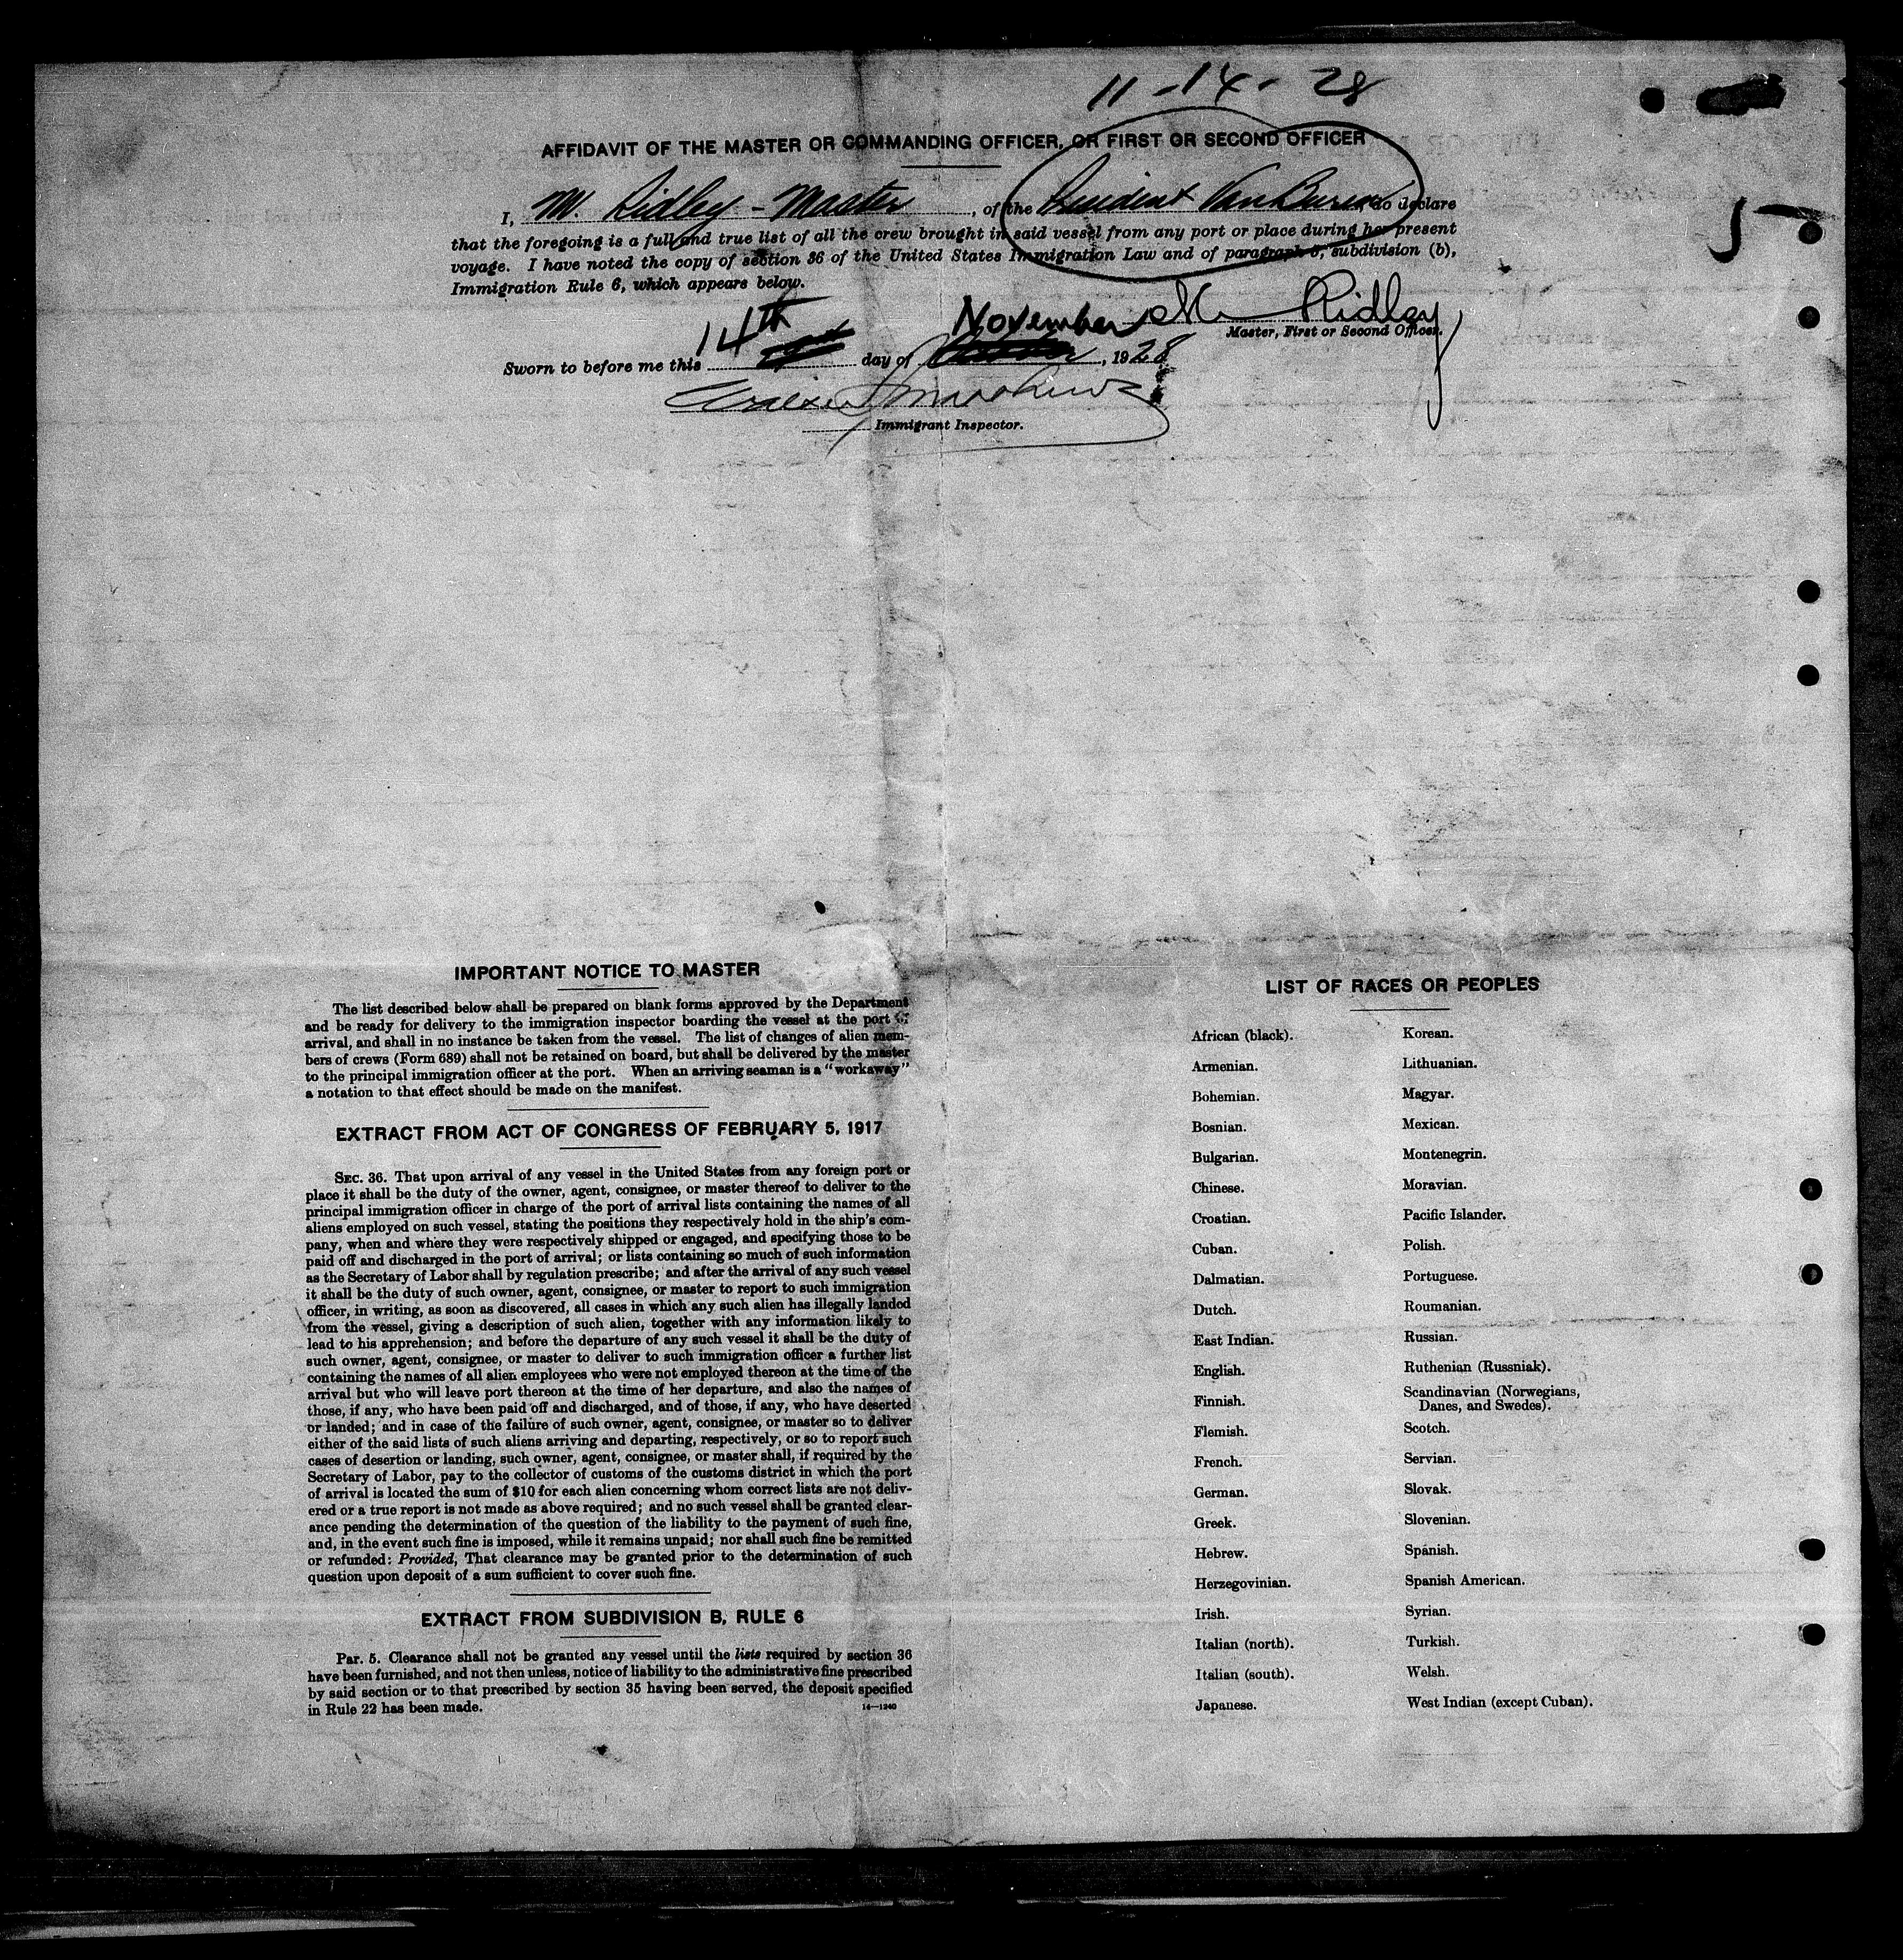 11-14-28
AFFIDAVIT OF THE MASTER OR COMMANDING OFFICER, OR FIRST OR SECOND OFFICER
I, M. Ridley - Master, of the President Van Buren, do declare
that the foregoing is a full and true list of all the crew brought in said vessel from any port or place during her present
voyage. I have noted the copy of section 36 of the United States Immigration Law and of paragraph 5, subdivision (b),
Immigration Rule 6, which appears below.
M Ridley
Master, First or Second Officer.
Sworn to before me this 14th day of November, 1928
Immigrant Inspector.
5
IMPORTANT NOTICE TO MASTER
The list described below shall be prepared on blank forms approved by the Department
and be ready for delivery to the immigration inspector boarding the vessel at the port of
arrival, and shall in no instance be taken from the vessel. The list of changes of alien mem-
bers of crews (Form 689) shall not be retained on board, but shall be delivered by the master
to the principal immigration officer at the port. When an arriving seaman is a "workaway"
a notation to that effect should be made on the manifest.
EXTRACT FROM ACT OF CONGRESS OF FEBRUARY 5, 1917
SEC. 36. That upon arrival of any vessel in the United States from any foreign port or
place it shall be the duty of the owner, agent, consignee, or master thereof to deliver to the
principal immigration officer in charge of the port of arrival lists containing the names of all
aliens employed on such vessel, stating the positions they respectively hold in the ship's com-
pany, when and where they were respectively shipped or engaged, and specifying those to be
paid off and discharged in the port of arrival; or lists containing so much of such information
as the Secretary of Labor shall by regulation prescribe; and after the arrival of any such vessel
it shall be the duty of such owner, agent, consignee, or master to report to such immigration
officer, in writing, as soon as discovered, all cases in which any such alien has illegally landed
from the vessel, giving a description of such alien, together with any information likely to
lead to his apprehension; and before the departure of any such vessel it shall be the duty of
such owner, agent, consignee, or master to deliver to such immigration officer a further list
containing the names of all alien employees who were not employed thereon at the time of the
arrival but who will leave port thereon at the time of her departure, and also the names of
those, if any, who have been paid off and discharged, and of those, if any, who have deserted
or landed; and in case of the failure of such owner, agent, consignee, or master so to deliver
either of the said lists of such aliens arriving and departing, respectively, or so to report such
cases of desertion or landing, such owner, agent, consignee, or master shall, if required by the
Secretary of Labor, pay to the collector of customs of the customs district in which the port
of arrival is located the sum of $10 for each alien concerning whom correct lists are not deliv-
ered or a true report is not made as above required; and no such vessel shall be granted clear-
ance pending the determination of the question of the liability to the payment of such fine,
and, in the event such fine is imposed, while it remains unpaid; nor shall such fine be remitted
or refunded: Provided, That clearance may be granted prior to the determination of such
question upon deposit of a sum sufficient to cover such fine.
EXTRACT FROM SUBDIVISION B, RULE 6
Par. 5. Clearance shall not be granted any vessel until the lists required by section 36
have been furnished, and not then unless, notice of liability to the administrative fine prescribed
by said section or to that prescribed by section 35 having been served, the deposit specified
in Rule 22 has been made.
14—1240
LIST OF RACES OR PEOPLES
African (black).
Armenian.
Bohemian.
Bosnian.
Bulgarian.
Chinese.
Croatian.
Cuban.
Dalmatian.
Dutch.
East Indian.
English.
Finnish.
Flemish.
French.
German.
Greek.
Hebrew.
Herzegovinian.
Irish.
Italian (north).
Italian (south).
Japanese.
Korean.
Lithuanian.
Magyar.
Mexican.
Montenegrin.
Moravian.
Pacific Islander.
Polish.
Portuguese.
Roumanian.
Russian.
Ruthenian (Russniak).
Scandinavian (Norwegians,
Danes, and Swedes).
Scotch.
Servian.
Slovak.
Slovenian.
Spanish.
Spanish American.
Syrian.
Turkish.
Welsh.
West Indian (except Cuban).